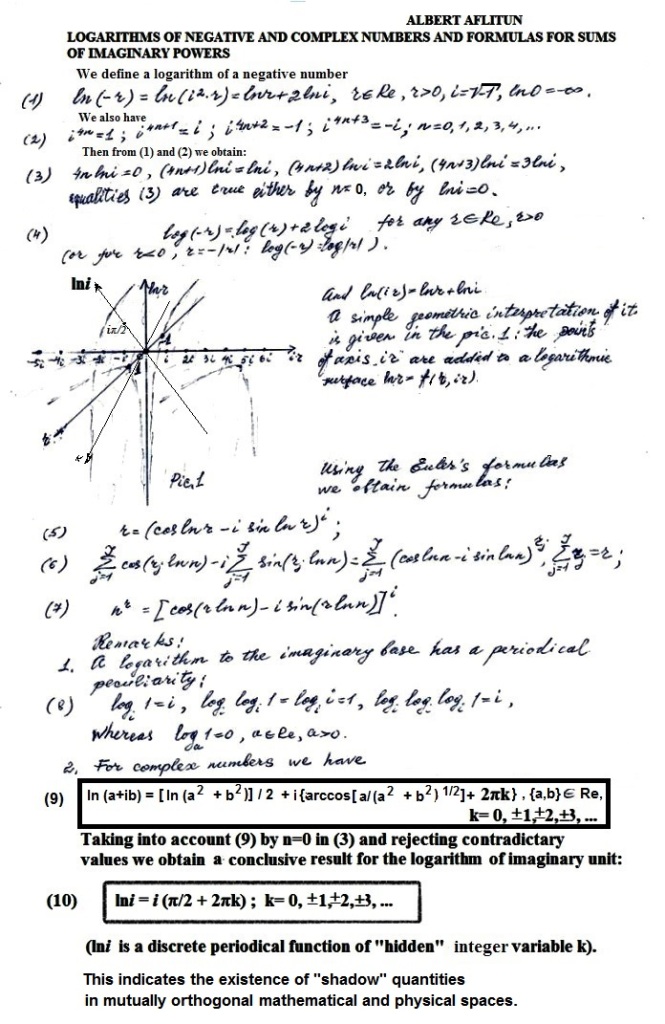 ALBERT AFLITUN
LOGARITHMS OF NEGATIVE AND COMPLEX NUMBERS AND FORMULAS FOR SUMS
OF IMAGINARY POWERS
We define a logarithm of a negative number
(1) ln(-r) = ln(i².r) = lnr + 2lni, r∈Re, r>0, i=√-1, ln0 = -∞.
We also have
(2) i⁴ⁿ = 1; i⁴ⁿ⁺¹ = i; i⁴ⁿ⁺² = -1; i⁴ⁿ⁺³ = -i; n=0,1,2,3,4,...
Then from (1) and (2) we obtain:
(3) 4n lni = 0, (4n+1)lni = lni, (4n+2)lni = 2lni, (4n+3)lni = 3lni,
equalities (3) are true either by n=0, or by lni=0.
(4) log(-r) = log(r) + 2logi for any r∈Re, r>0
(or for r<0, r=-|r|: log(-r) = log|r|).
lni lnr
And ln(ir) = lnr + lni
iπ/2
A simple geometric interpretation of it
is given in the pic. 1: the points
-5i -4i -3i -2i -i 1 i 2i 3i 4i 5i 6i ir
of axis ir are added to a logarithmic
surface lnr = f(r, ir).
r
Pic.1
Using the Euler's formulas
we obtain formulas:
(5) r = (cos lnr - i sin lnr)ⁱ;
(6) Σ cos(rⱼ lnn) - i Σ sin(rⱼ lnn) = Σ (cos lnn - i sin lnn) , Σ rⱼ = r;
(7) nʳ = [cos(r lnn) - i sin(r lnn)]ⁱ.
Remarks:
1. A logarithm to the imaginary base has a periodical
peculiarity:
(8) logᵢ 1 = i, logᵢ logᵢ 1 = logᵢ i = 1, logᵢ logᵢ logᵢ 1 = i,
whereas logₐ 1 = 0, a∈Re, a>0.
2. For complex numbers we have
(9) ln (a+ib) = [ ln (a² + b²)] / 2 + i {arccos[ a/(a² + b²) 1/2]+ 2πk} , {a,b}∈ Re,
k= 0, ±1,±2,±3, ...
Taking into account (9) by n=0 in (3) and rejecting contradictary
values we obtain a conclusive result for the logarithm of imaginary unit:
(10) lni = i (π/2 + 2πk) ; k= 0, ±1,±2,±3, ...
(lni is a discrete periodical function of "hidden" integer variable k).
This indicates the existence of "shadow" quantities
in mutually orthogonal mathematical and physical spaces.